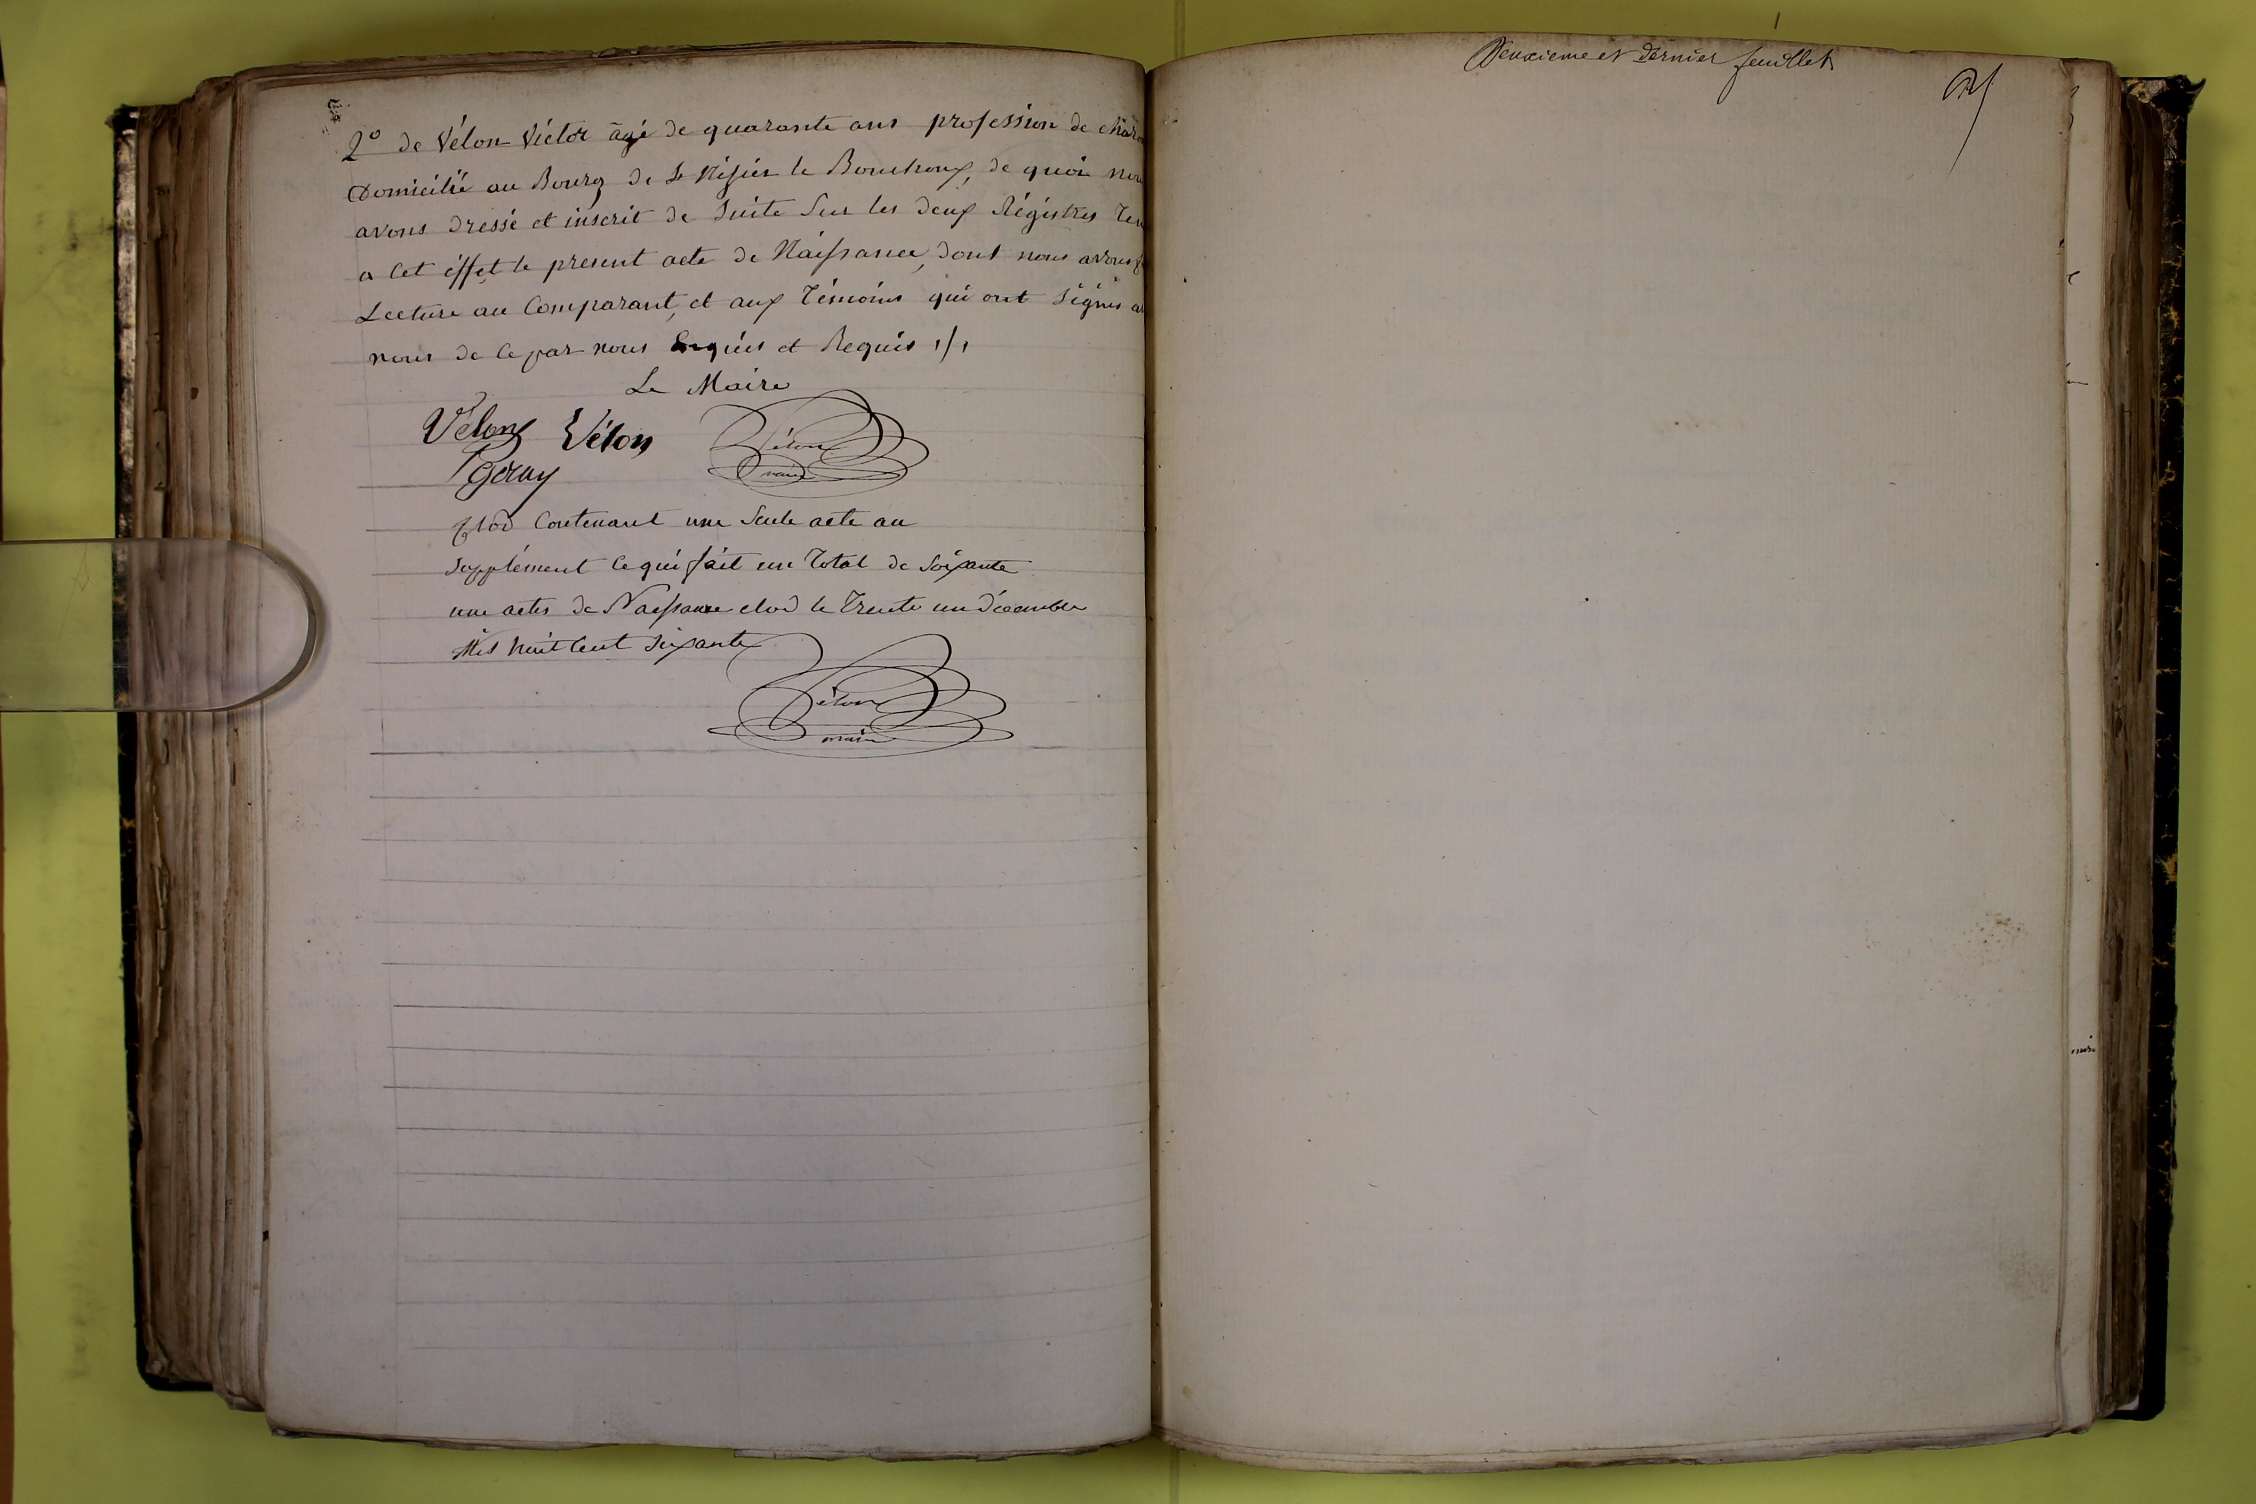 2º de Vélon Victor âgé de quarante ans profession de
Domicilié au Bourg de St Nizier le Bouchoux, de quoi
avons dressé et inscrit de suite Sur les deux Régistres
a Cet éffet le present acte de Naissance, dont nous avons
Lecture au Comparant, et aux Témoins qui ont Signés
nous de Ce par nous Enquiés et Requis
Le Maire
Vélon Vélon Vélon
maire
Clos Contenant une Seule acte au
Supplément Ce qui fait un Total de Soixante
une actes de Naissance clos le Trente un Décembre
Mil huit Cent Soixante
Vélon
maire
Deuxieme et dernier feuillet